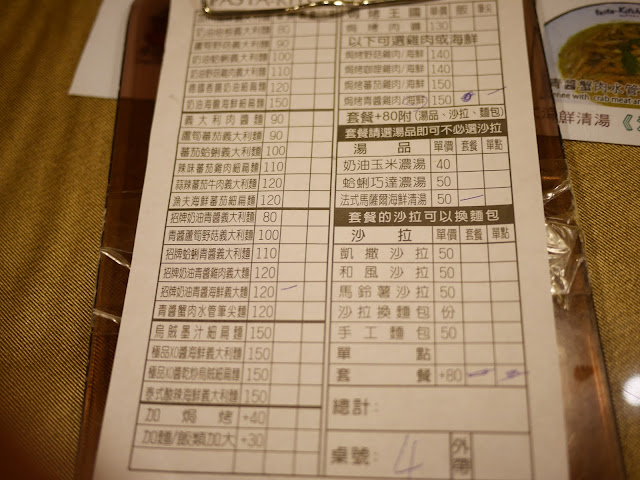 PASTA
奶油培根義大利麵 80
蘆筍野菇義大利麵 90
奶油蛤蜊義大利麵 100
奶油野菇雞肉義大利麵 110
德國香腸奶油細扁麵 120
奶油海鮮義大利麵 150
義大利肉醬麵 90
蘆筍蕃茄義大利麵 90
蕃茄蛤蜊義大利麵 100
辣味蕃茄雞肉細扁麵 110
蒜辣蕃茄牛肉義大利麵 120
漁夫海鮮蕃茄細扁麵 120
招牌奶油青醬義大利麵 80
青醬蘆筍野菇義大利麵 100
招牌蛤蜊青醬義大利麵 110
招牌奶油青醬雞肉義大利麵 120
招牌奶油青醬海鮮義大利麵 120
青醬蟹肉水管筆尖麵 120
烏賊墨汁細扁麵 150
極品XO醬海鮮義大利麵 150
極品XO醬乾炒烏賊細扁麵 150
泰式酸辣海鮮義大利麵 150
加焗烤 +40
加麵/飯類加大 +30
焗烤王國 單價 飯 筆尖
焗烤肉醬 130
以下可選雞肉或海鮮
焗烤野菇雞肉/海鮮 140
焗烤咖哩雞肉/海鮮 140
焗烤蕃茄雞肉/海鮮 150
焗烤青醬雞肉/海鮮 150
套餐+80附(湯品、沙拉、麵包)
套餐請選湯品即可不必選沙拉
湯品 單價 套餐 單點
奶油玉米濃湯 40
蛤蜊巧達濃湯 50
法式馬薩爾海鮮清湯 50
套餐的沙拉可以換麵包
沙拉 單價 套餐 單點
凱撒沙拉 50
和風沙拉 50
馬鈴薯沙拉 50
沙拉換麵包 份
手工麵包 50
單點
套餐 +80
總計:
桌號: 4 外帶
青醬蟹肉水管
海鮮清湯